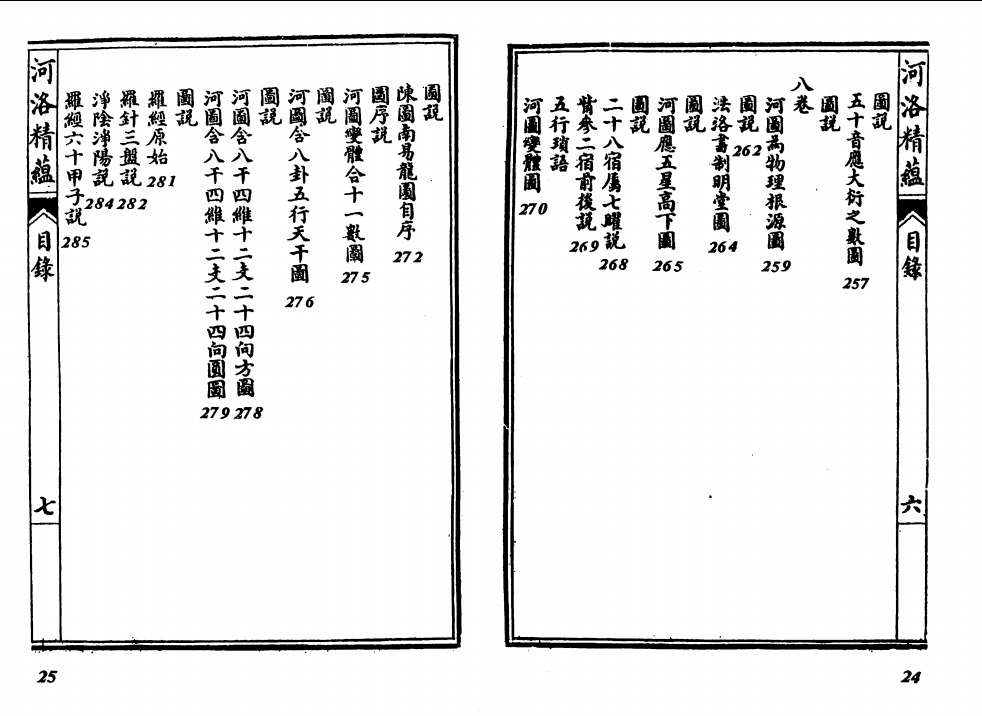 河洛精蘊
目錄
六
圖説
五十音應大衍之數圖
257
圖説
八卷
河圖為物理根源圖
259
圖説
262
法洛書制明堂圖
264
圖説
河圖應五星高下圖
265
圖説
二十八宿屬七曜説
268
觜參二宿前後説
269
五行瑣語
河圖變體圖
270
24
圖説
陳圖南易龍圖自序
272
圖序説
河圖變體合十一數圖
275
圖説
河圖含八卦五行天干圖
276
圖説
河圖含八干四維十二支二十四向方圖
278
河圖含八干四維十二支二十四向圓圖
279
圖説
羅經原始
281
羅針三盤説
282
淨陰淨陽説
284
羅經六十甲子説
285
河洛精蘊
目錄
七
25